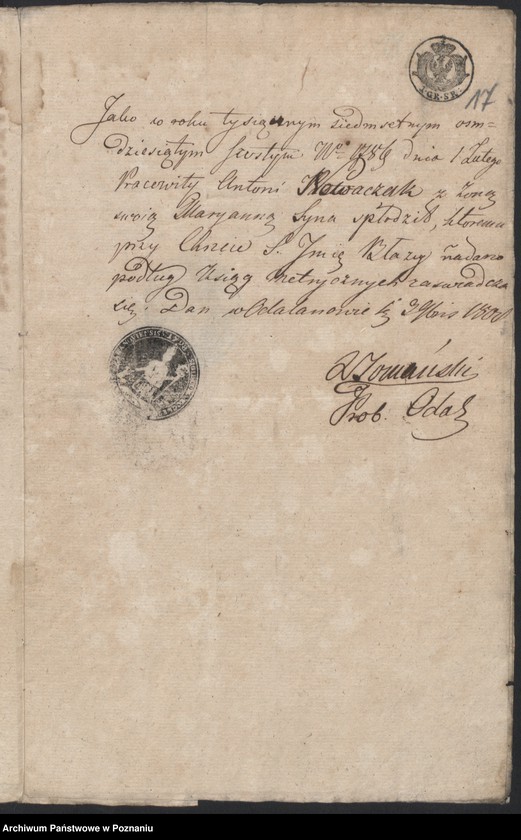 17
Jako w roku tysiącznym siedmsetnym osm=
dziesiątym szóstym 1786 dnia 1 Lutego
Pracowity Antoni Nowaczak z żoną
swoią Maryanną Syna spłodził, któremu
przy Chrzcie S. Jmię Błażej nadano
podług Xsiąg metrycznych zaswiadcza
się. Dan w Odalanowie 1808
Prob. Odal
Archiwum Państwowe w Poznaniu